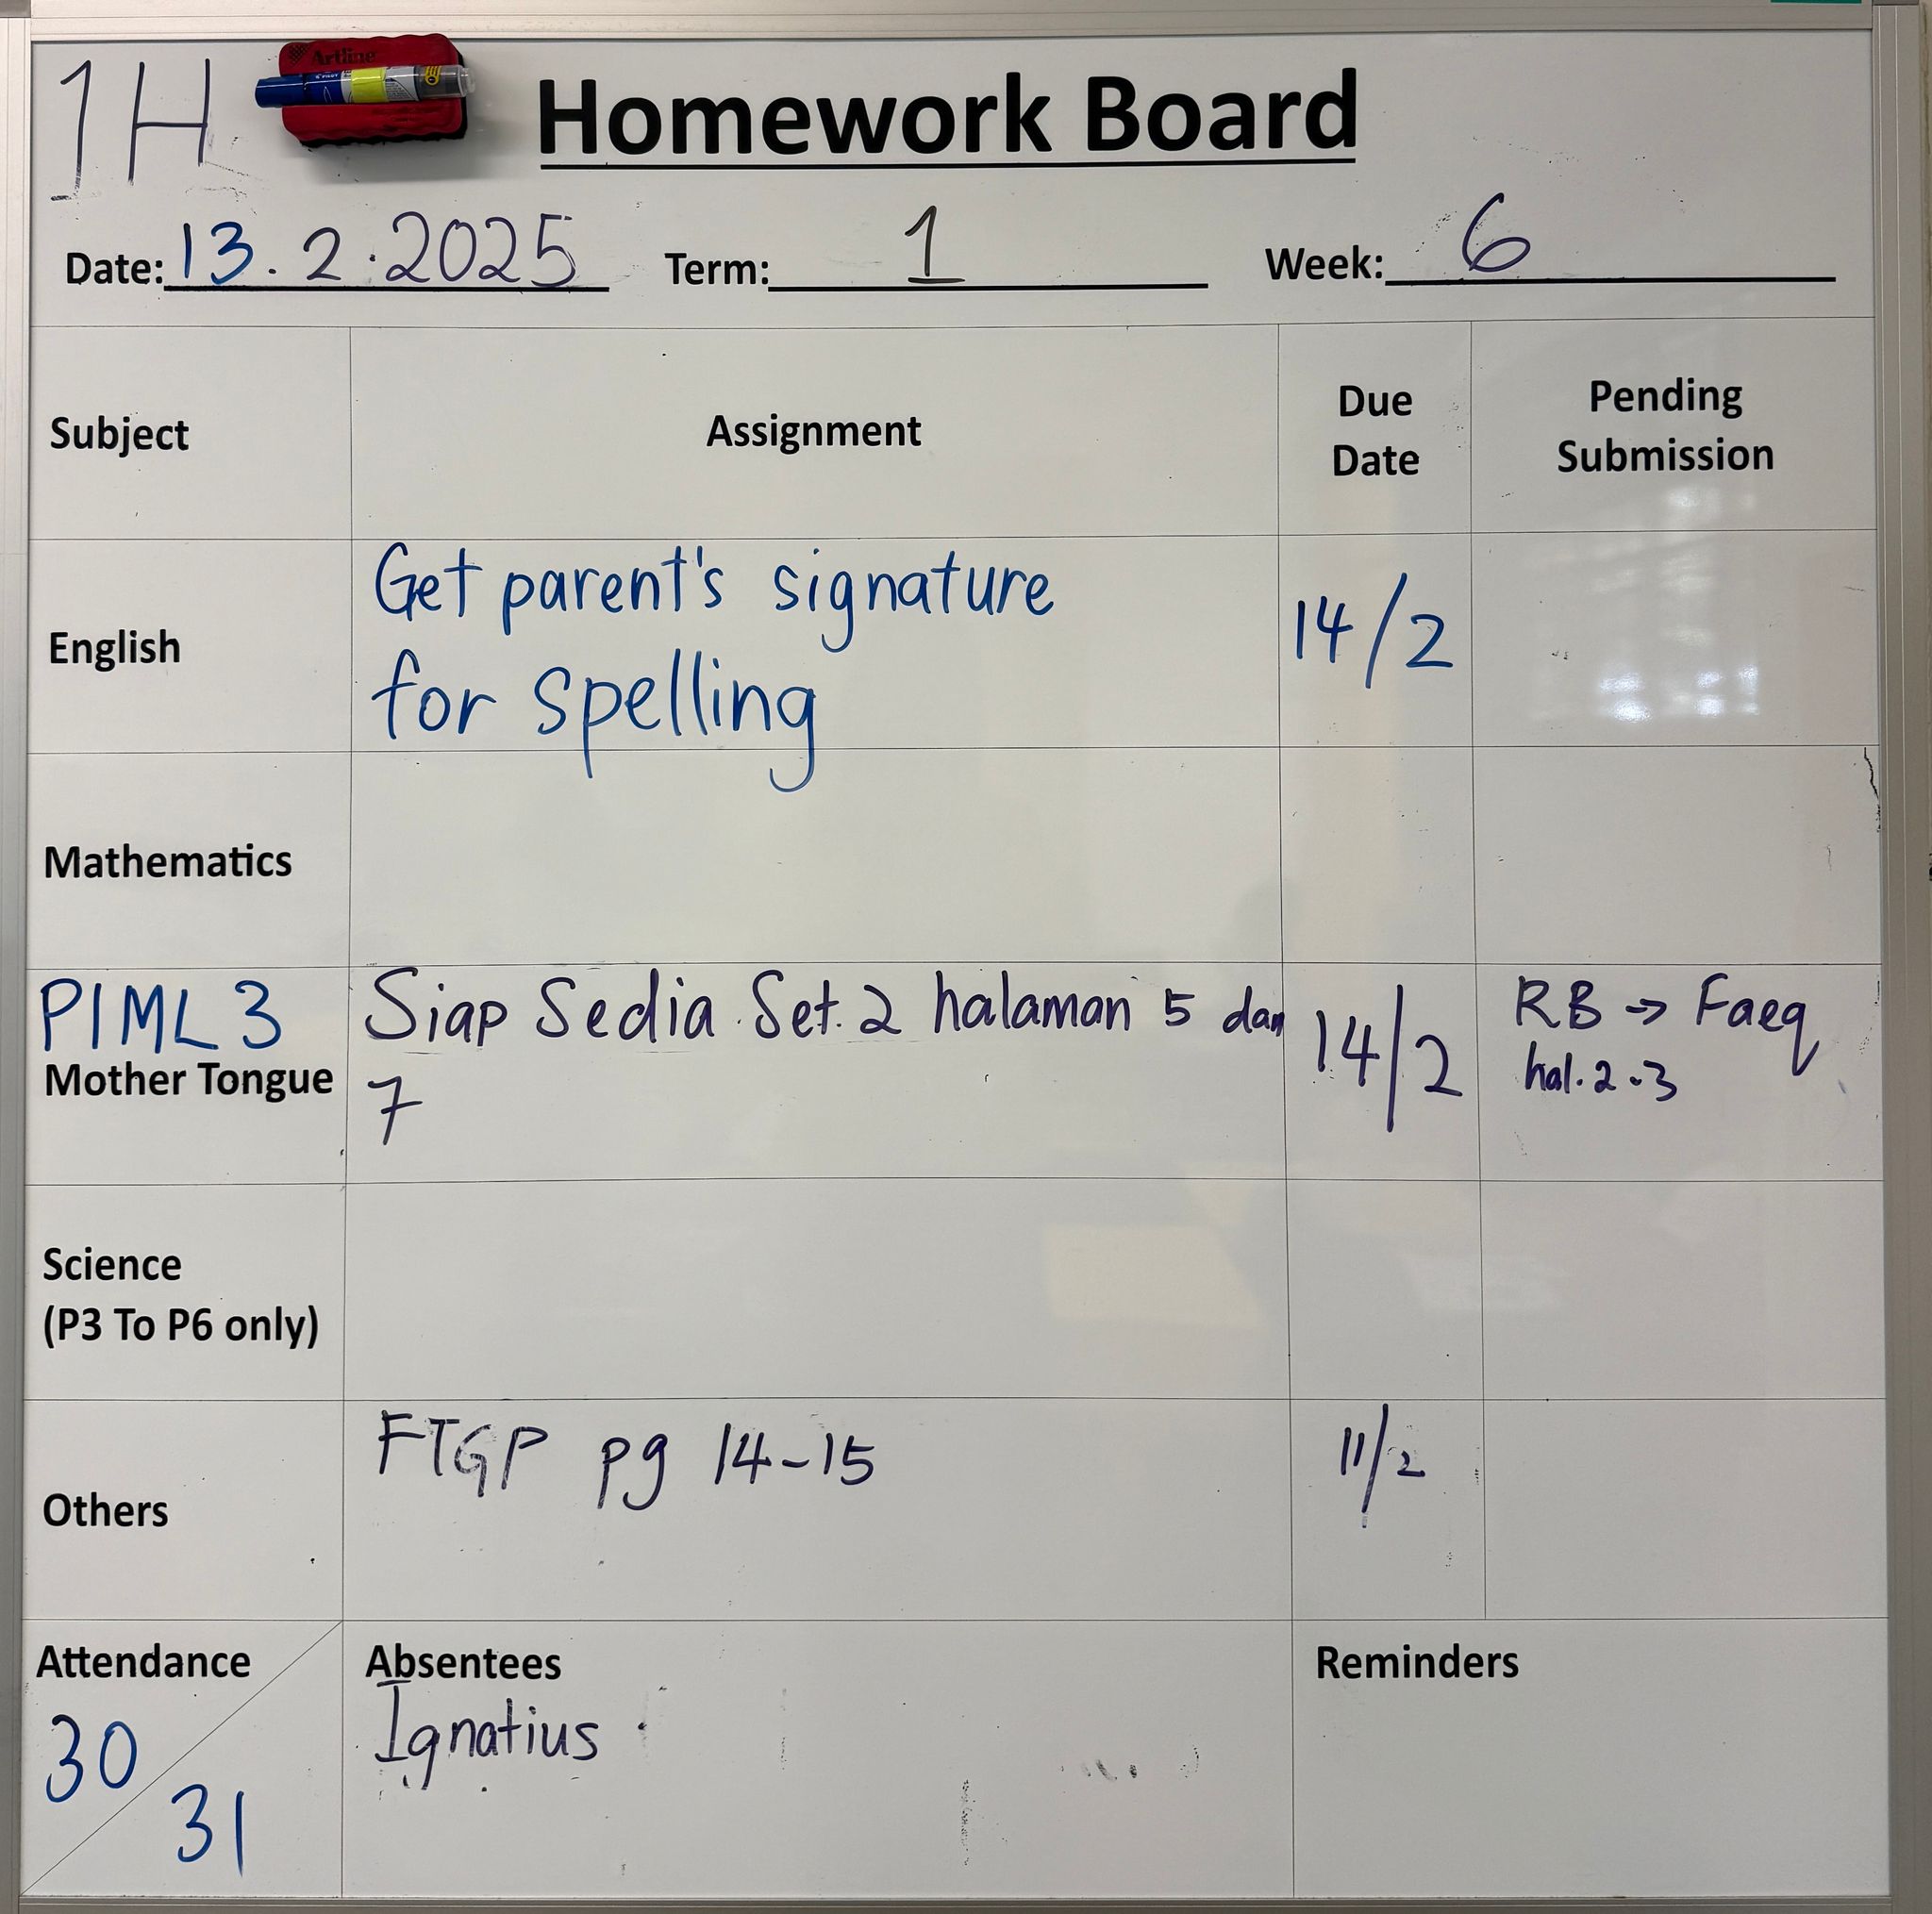 1H
Artline
Homework Board
Date: 13.2.2025 Term: 1 Week: 6
Subject Assignment Due Date Pending Submission
English
Get parent's signature
for spelling
14/2
Mathematics
PIML 3
Mother Tongue
Siap Sedia Set. 2 halaman 5 dan
7
14/2
RB → Faeq
hal. 2-3
Science
(P3 To P6 only)
Others
FTGP pg 14-15
11/2
Attendance
30
31
Absentees
Ignatius
Reminders